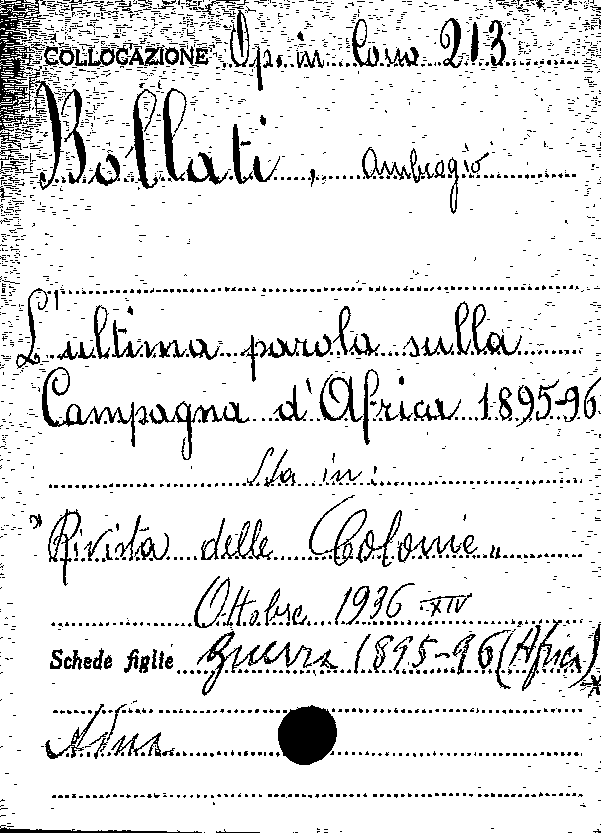 COLLOCAZIONE Op. in Cons 213
Bollati, Ambrogio
L'ultima parola sulla
Campagna d'Africa 1895-96
Sta in:
"Rivista delle Colonie"
Ottobre 1936 XIV
Schede figlie Guerra 1895-96 (Africa)
Adua